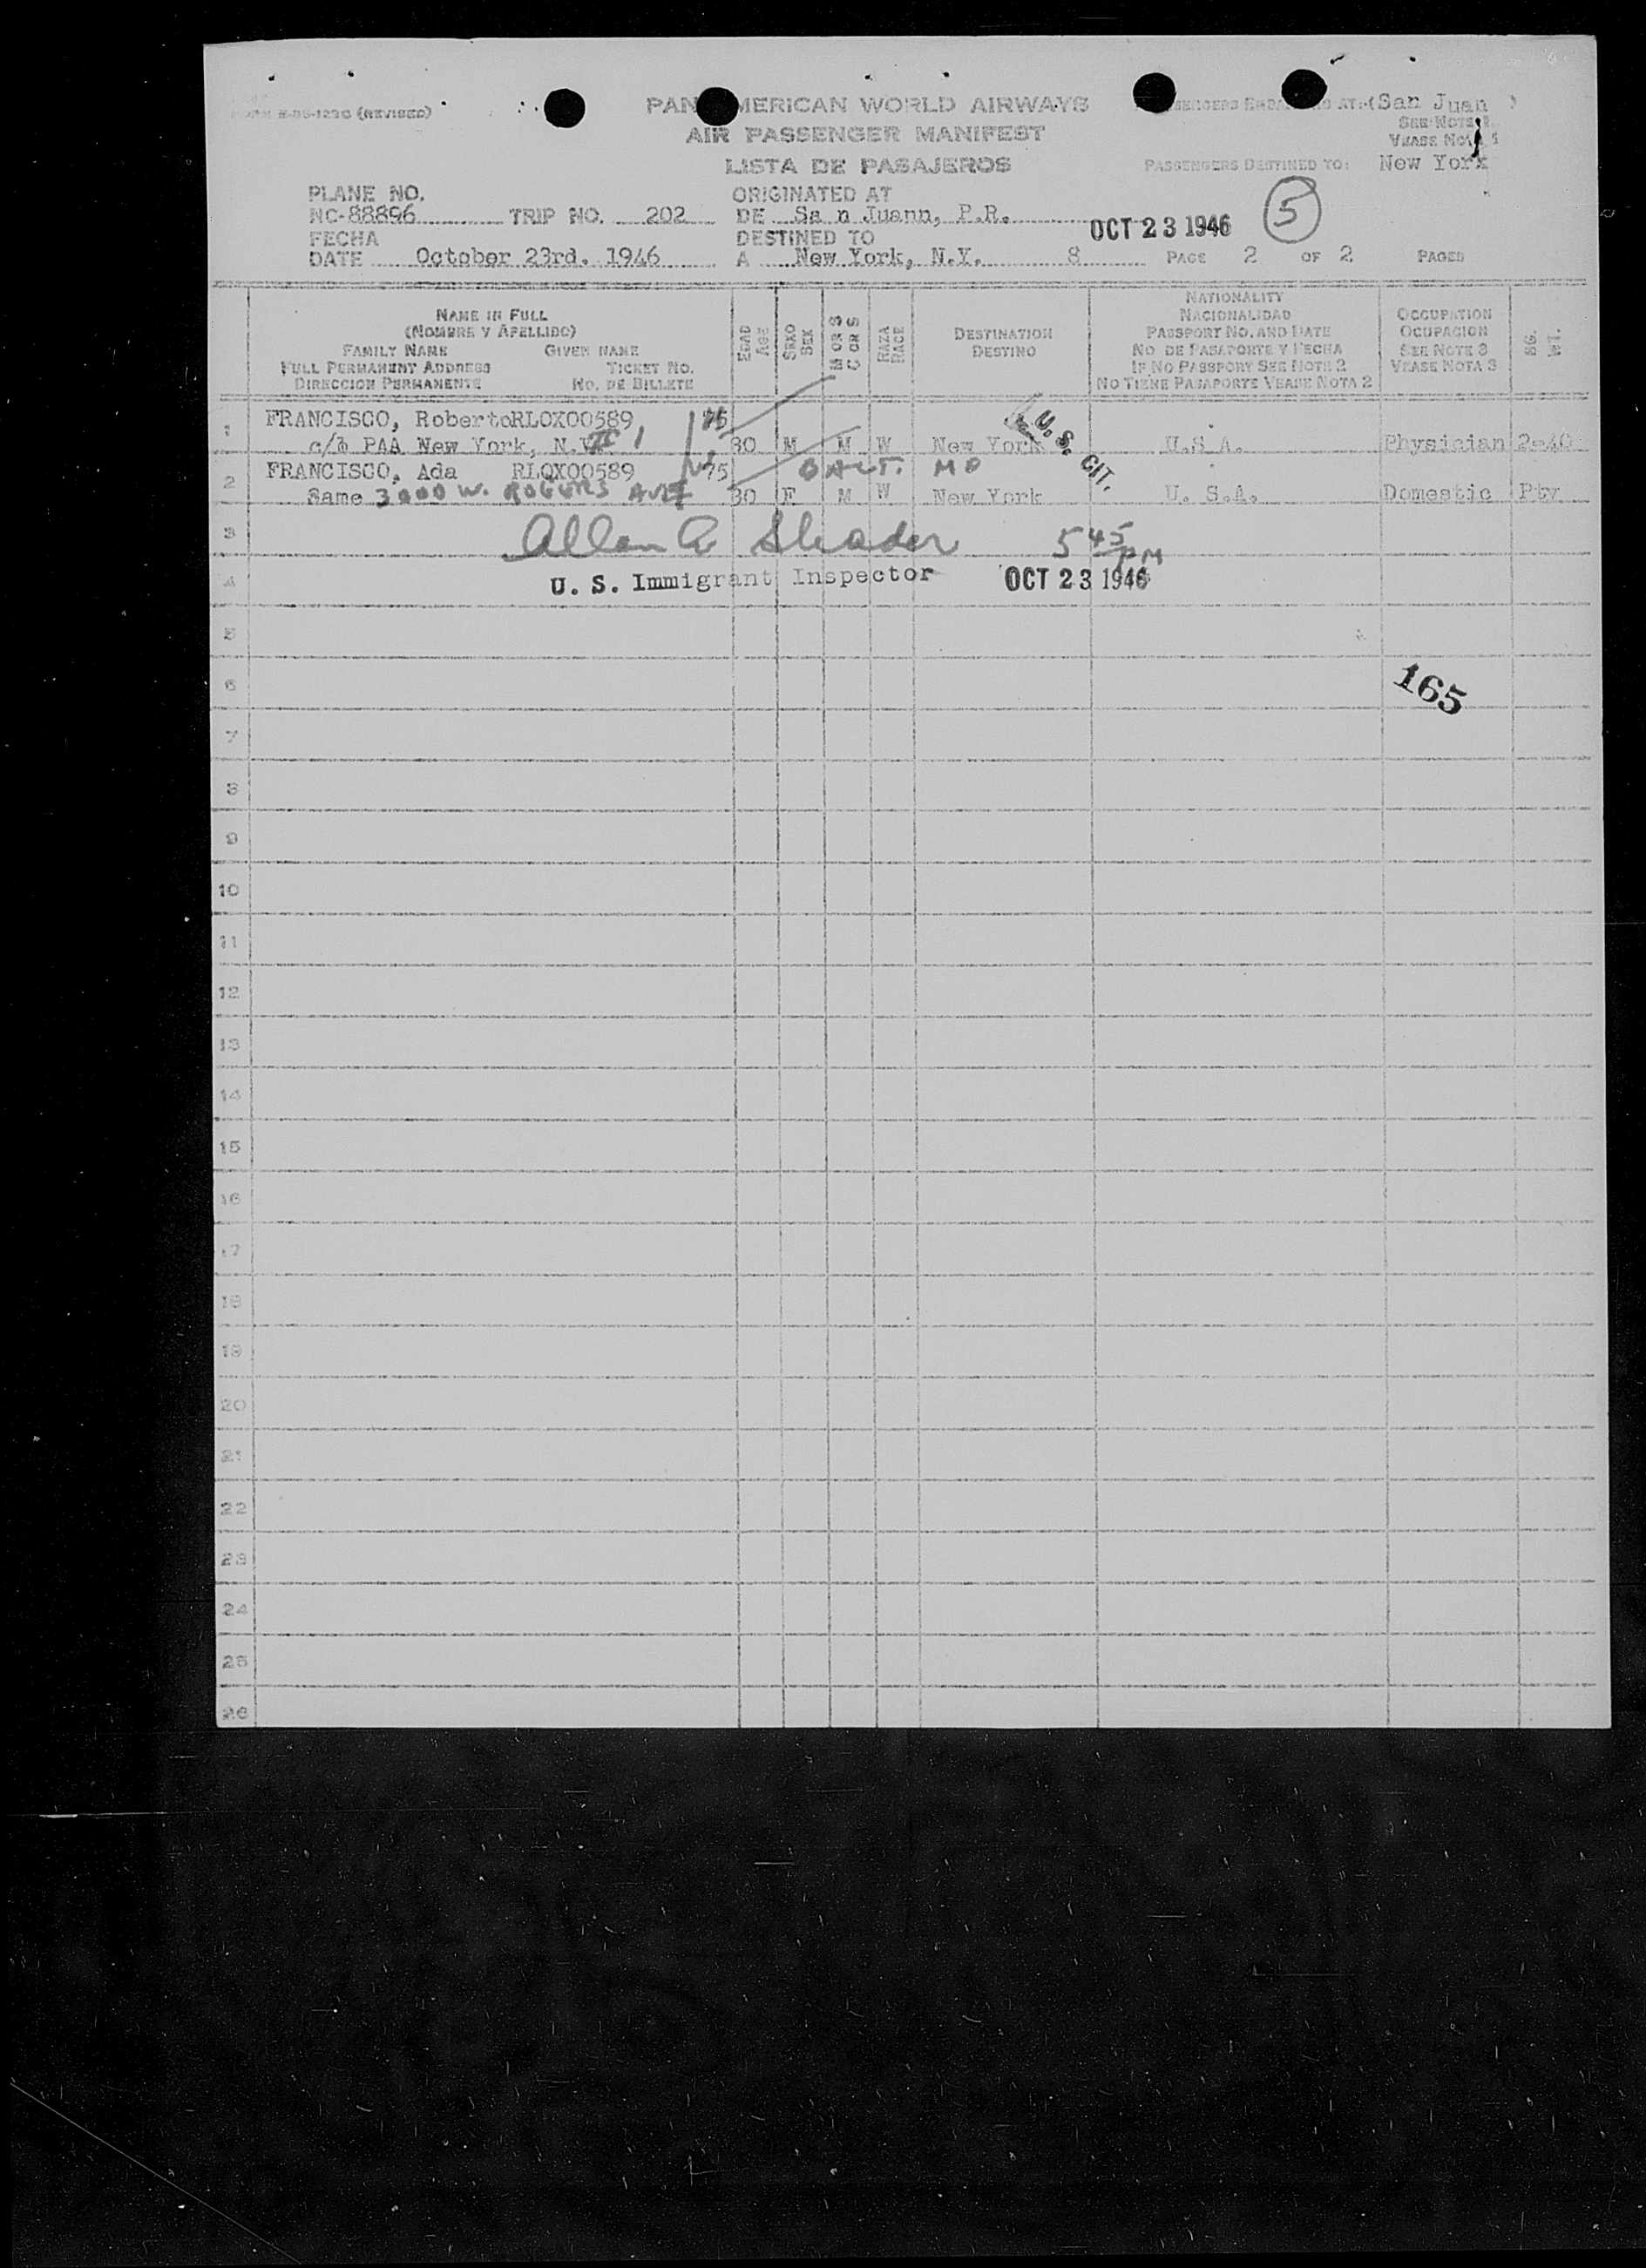 (REVISED)
PAN AMERICAN WORLD AIRWAYS
AIR PASSENGER MANIFEST
LISTA DE PASAJEROS
AT:(San Juan )
SEE NOTE 1
VEASE NOTA 1
PASSENGERS DESTINED TO: New York
PLANE NO.
NC-88896 TRIP NO. 202
ORIGINATED AT
DE Sa n Juann, P.R.
OCT 23 1946
5
FECHA
DATE October 23rd. 1946
DESTINED TO
A New York, N.Y. 8
PAGE 2 OF 2 PAGES
NAME IN FULL
(NOMBRE Y APELLIDO)
FAMILY NAME GIVEN NAME
FULL PERMANENT ADDRESS TICKET NO.
DIRECCION PERMANENTE NO. DE BILLETE
EDAD
AGE
SEXO
SEX
M OR S
C OR S
RAZA
RACE
DESTINATION
DESTINO
NATIONALITY
NACIONALIDAD
PASSPORT NO. AND DATE
NO DE PASAPORTE Y FECHA
IF NO PASSPORT SEE NOTE 2
NO TIENE PASAPORTE VEASE NOTA 2
OCCUPATION
OCUPACION
SEE NOTE 3
VEASE NOTA 3
BG.
WT.
1 FRANCISCO, RobertoRLOX00589
c/o PAA New York, N.Y. 30 M M W New York U.S.A. Physician 2-40
U.S. CIT.
2 FRANCISCO, Ada RLOX00589 75 BALT. MD
Same 3000 W. ROGERS AVE 30 F M W New York U. S.A. Domestic Pty
3 Allan A Shader 5 45 PM
4 U. S. Immigrant Inspector OCT 23 1946
5
6 165
7
8
9
10
11
12
13
14
15
16
17
18
19
20
21
22
23
24
25
26